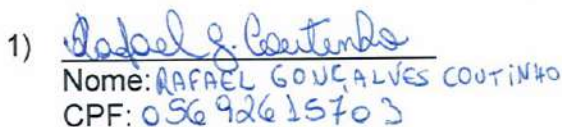 1) Rafael G. Coutinho
Nome: RAFAEL GONÇALVES COUTINHO
CPF: 05692615703